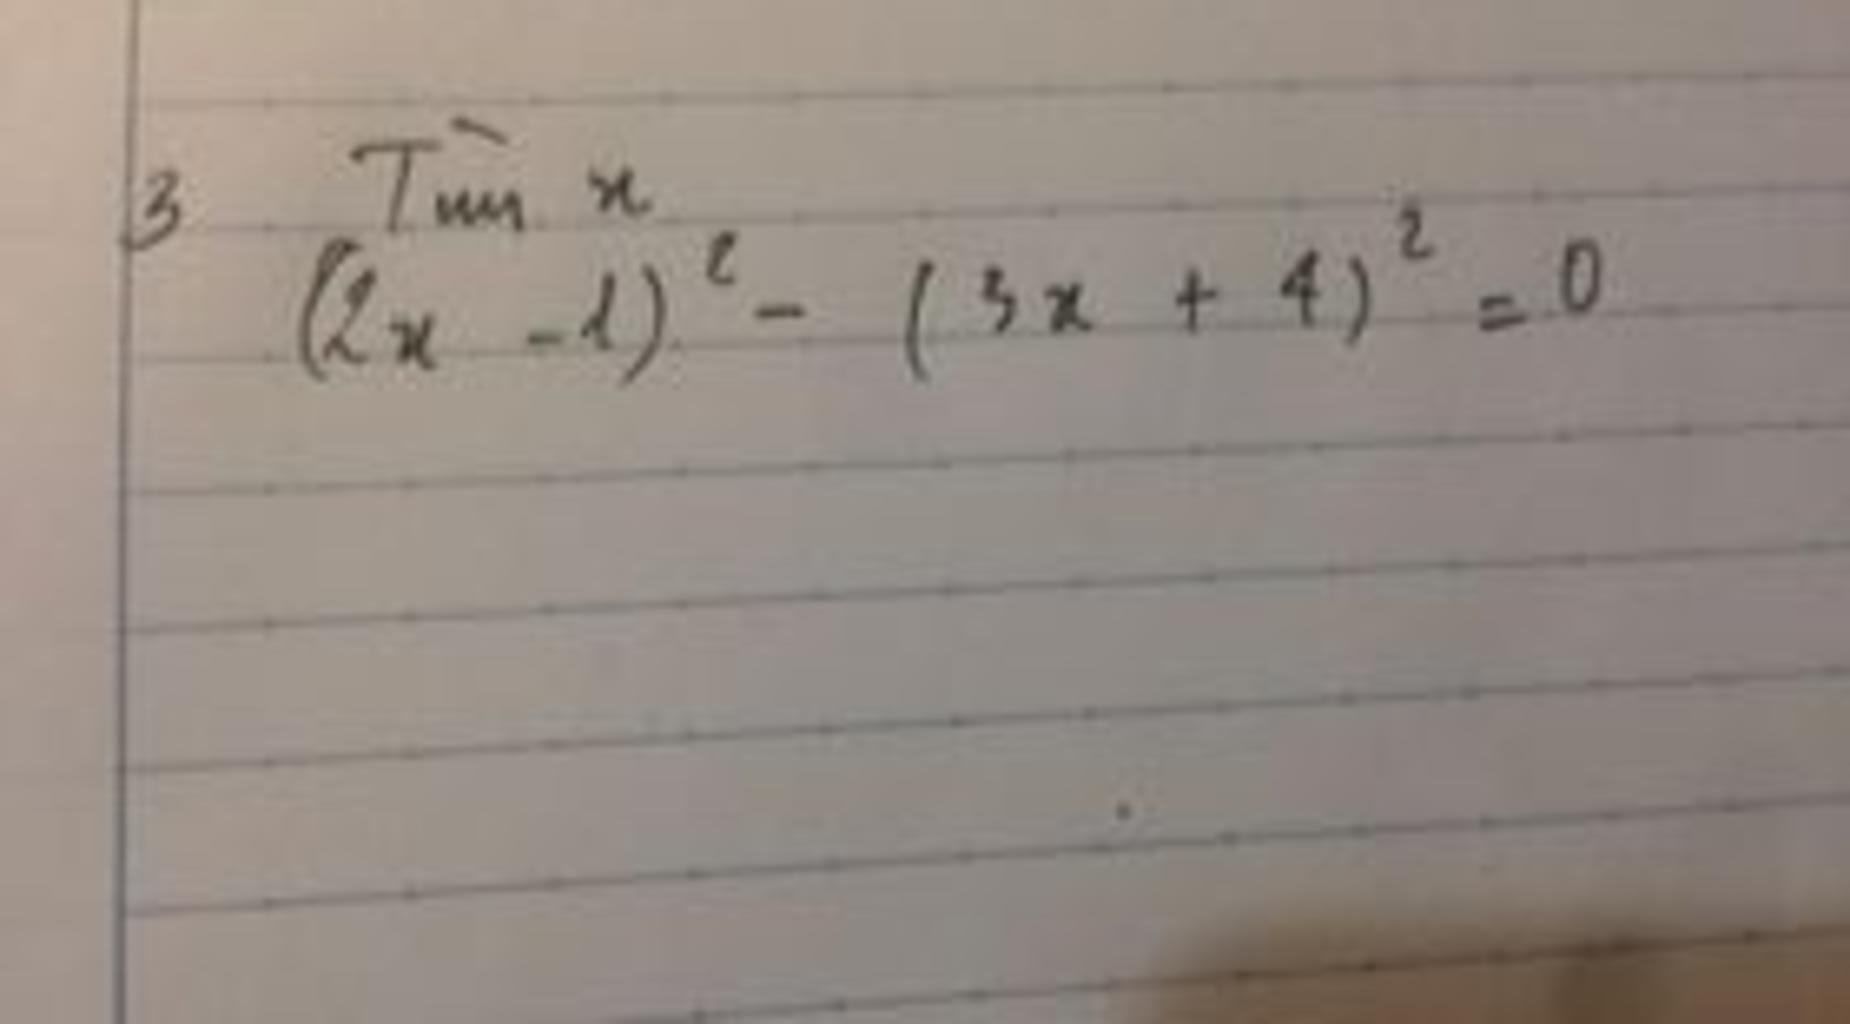 3 Tìm x
(2x - 1)² - (3x + 4)² = 0